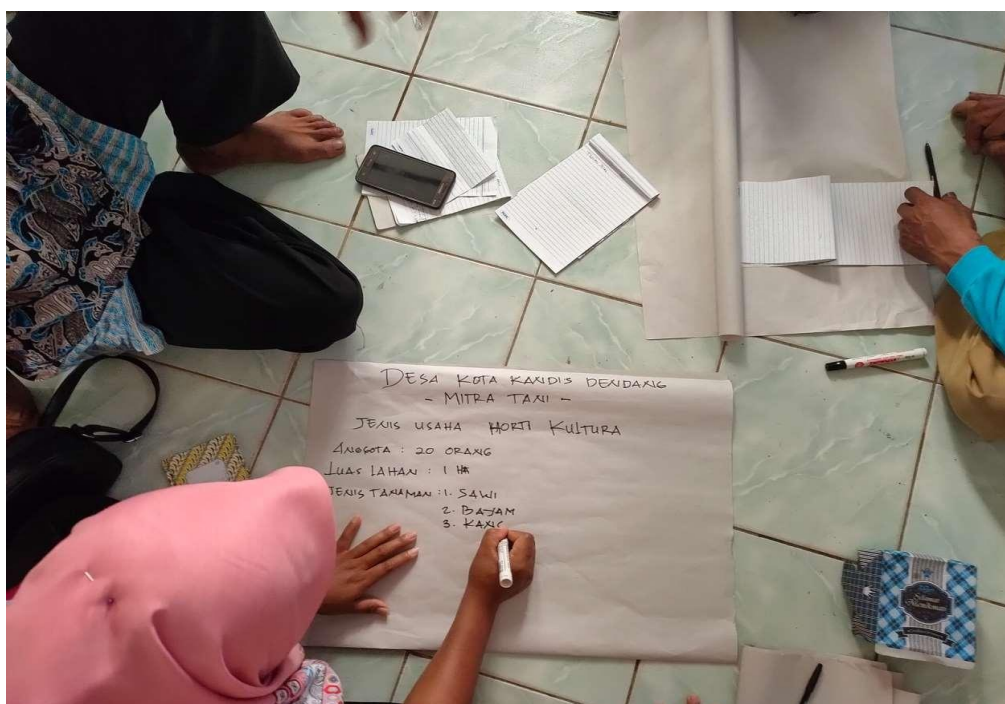 DESA KOTA KANDIS DENDANG
- MITRA TANI -
JENIS USAHA HORTI KULTURA
ANGGOTA : 20 ORANG
LUAS LAHAN : 1 HA
JENIS TANAMAN : 1. SAWI
2. BAYAM
3. KANG
Selamat Menikmati